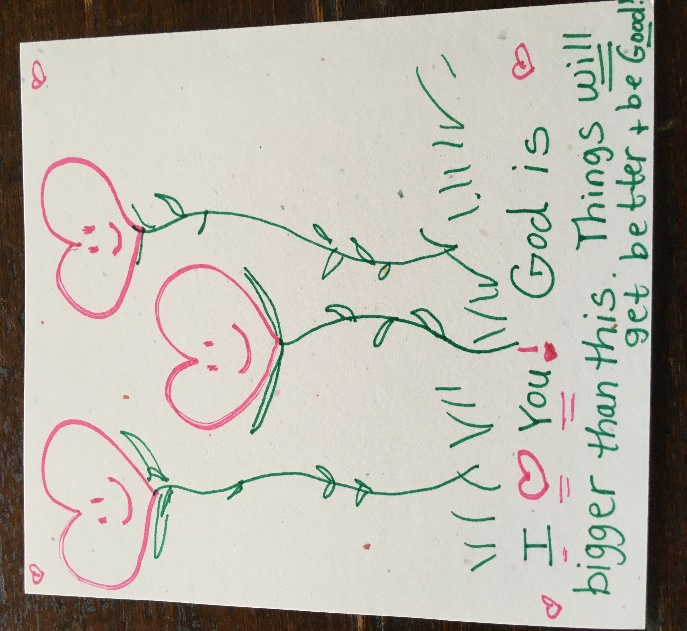 I ♡ You! God is
bigger than this. Things will
get better + be Good!